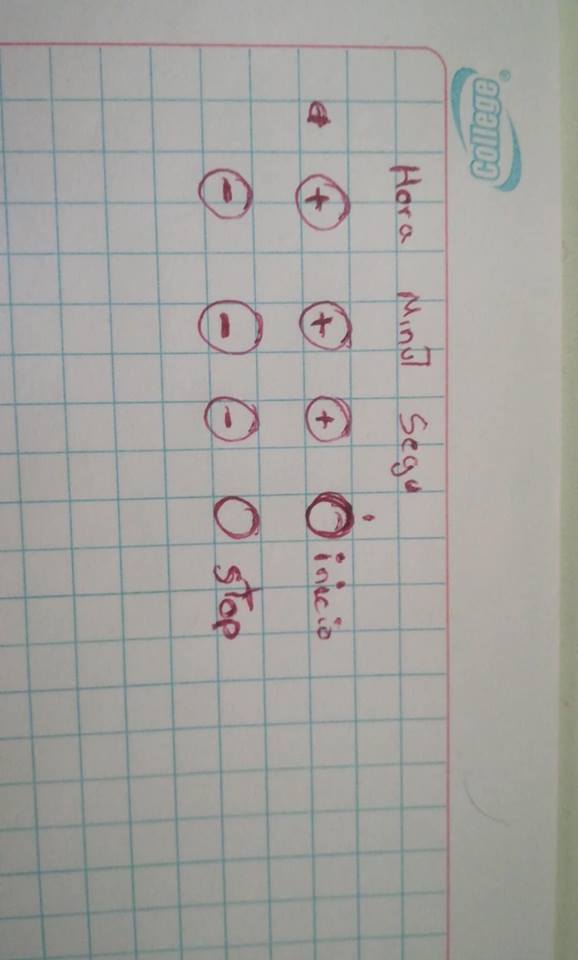 College®
Hora Minut Segu
+ + + inicio
- - - stop